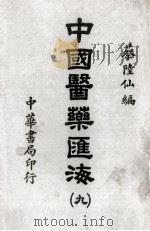 蔡陸仙編
中國醫藥匯海
(九)
中華書局印行
www.gototsg.com